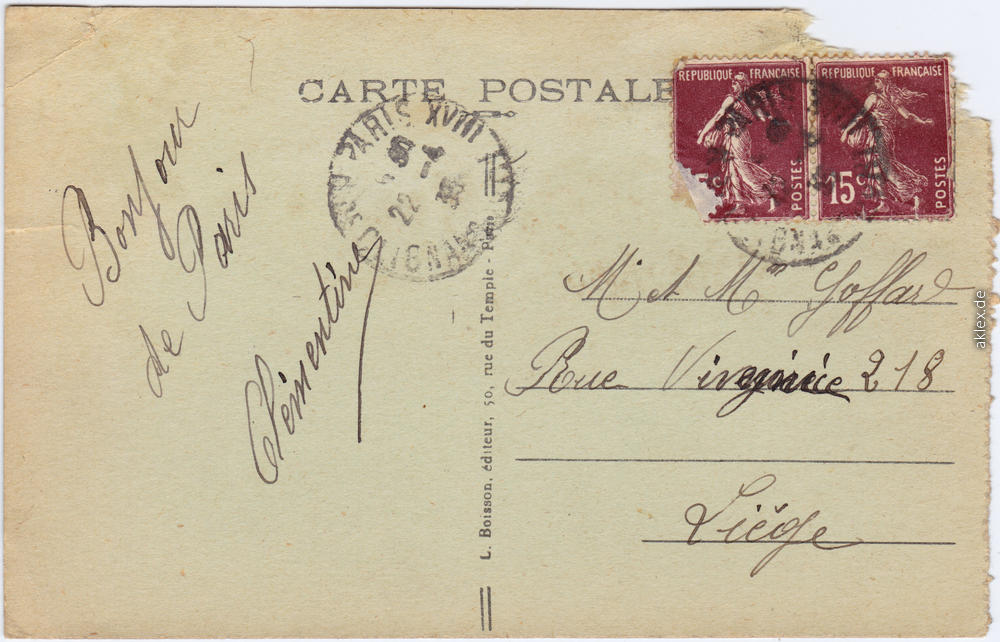 CARTE POSTALE
RÉPUBLIQUE FRANÇAISE
POSTES
RÉPUBLIQUE FRANÇAISE
15c
POSTES
PARIS XVIII
22
Bonjour
de Paris
Clémentine
L. Boisson, éditeur, 50, rue du Temple - Paris
M. et Mme Goffard
Rue Virginie 218
Liége
aklex.de